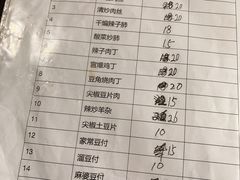 3 清炒肉丝 20
4 干煸辣子肺 20
5 酸菜炒肺 18
辣子肉丁 15
6 宫爆鸡丁 20
7 豆角烧肉丁 20
8 尖椒豆片肉 20
9 辣炒羊杂 15
10 尖椒土豆片 26
11 家常豆付 10
12 溜豆付 15
13 麻婆豆付 10
14